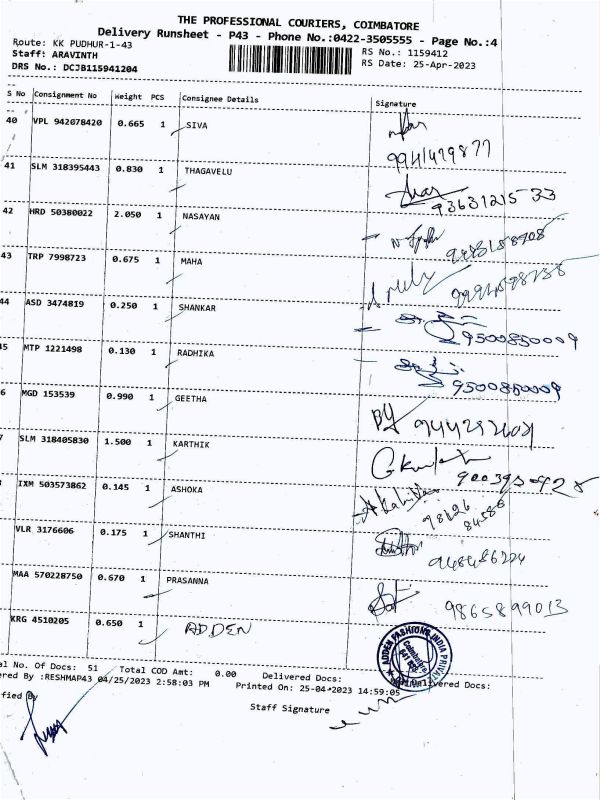 THE PROFESSIONAL COURIERS, COIMBATORE
Delivery Runsheet - P43 - Phone No.:0422-3505555 - Page No.:4
Route: KK PUDHUR-1-43
Staff: ARAVINTH RS No.: 1159412
DRS No.: DCJB115941204 RS Date: 25-Apr-2023
S No Consignment No Weight PCS Consignee Details Signature
40 VPL 942078420 0.665 1 SIVA
9941479877
41 SLM 318395443 0.830 1 THAGAVELU
9363121533
42 HRD 50380022 2.050 1 NASAYAN
43 TRP 7998723 0.675 1 MAHA
44 ASD 3474819 0.250 1 SHANKAR
9500850009
45 MTP 1221498 0.130 1 RADHIKA
9500850009
6 MGD 153539 0.990 1 GEETHA
7 SLM 318405830 1.500 1 KARTHIK
IXM 503573862 0.145 1 ASHOKA
VLR 3176606 0.175 1 SHANTHI
MAA 570228750 0.670 1 PRASANNA
9865899013
KRG 4510205 0.650 1 ADDEN
ADDEN FASHIONS INDIA PRIVATE
Coimbatore
al No. Of Docs: 51 Total COD Amt: 0.00 Delivered Docs: Delivered Docs:
ered By :RESHMAP43 04/25/2023 2:58:03 PM Printed On: 25-04-2023 14:59:05
ified By Staff Signature